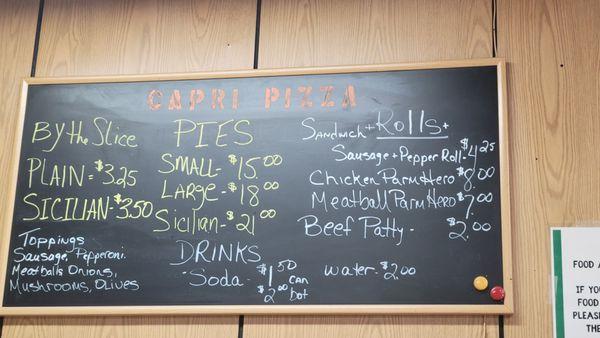 CAPRI PIZZA
By the Slice
PLAIN - $3.25
SICILIAN - $3.50
Toppings
Sausage, Pepperoni.
Meatballs Onions,
Mushrooms, Olives
PIES
SMALL - $15.00
LARGE - $18.00
Sicilian - $21.00
DRINKS
Soda - $1.50 can
$2.00 bot
water - $2.00
Sandwich + Rolls +
Sausage + Pepper Roll - $4.25
Chicken Parm Hero $8.00
Meatball Parm Hero $7.00
Beef Patty - $2.00
FOOD
IF YOU
FOOD
PLEASE
THE